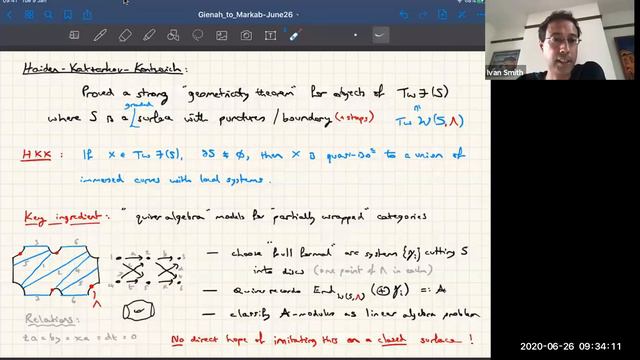 Gienah_to_Markab-June26
Ivan Smith
Haiden-Katzarkov-Kontsevich:
Proved a strong "geometricity theorem" for objects of Tw F(S)
graded
where S is a surface with punctures / boundary (+ stops) Tw W(S,Λ)
HKK: If X ∈ Tw F(S), ∂S ≠ ∅, then X is quasi-iso to a union of
immersed curves with local systems.
Key ingredient: "quiver algebra" models for "partially wrapped" categories
— choose "full formal" arc system {γi} cutting S
into discs (one point of Λ in each)
— Quiver records End W(S,Λ) (⊕ γi) =: A
— classify A-modules as linear algebra problem
Λ
Relations:
ta = by = xa = dt = 0
No direct hope of imitating this on a closed surface!
2020-06-26 09:34:11